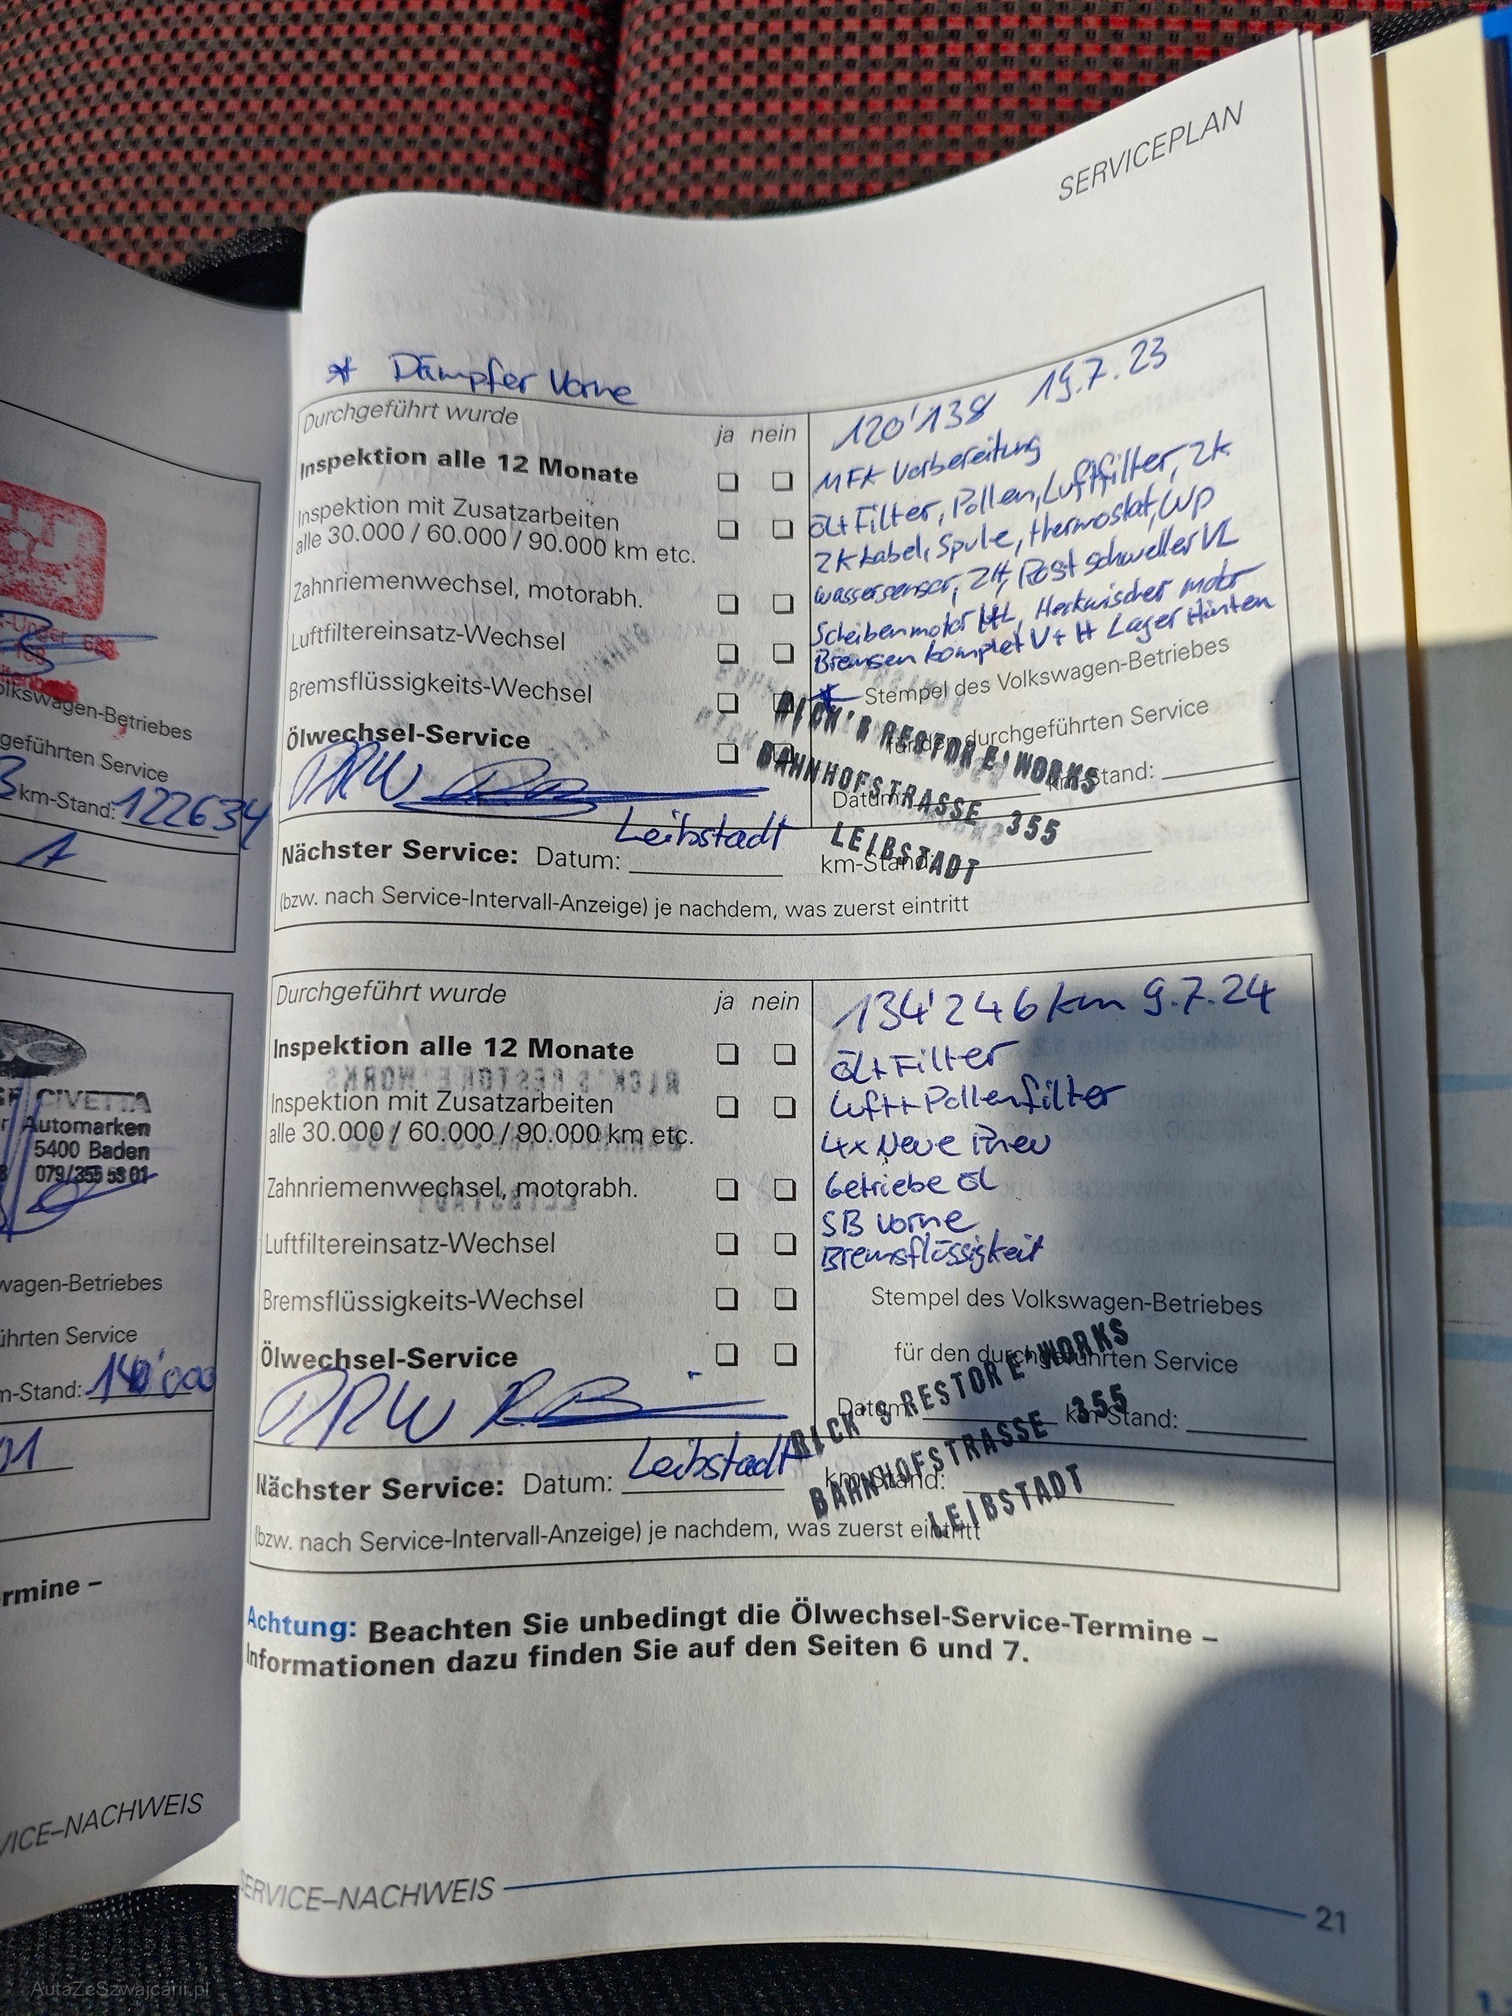 SERVICEPLAN
* Dämpfer Vorne
Durchgeführt wurde
ja nein
120'138 19.7.23
Inspektion alle 12 Monate
MFK Vorbereitung
Inspektion mit Zusatzarbeiten
alle 30.000 / 60.000 / 90.000 km etc.
Öl+Filter, Pollen, Luftfilter, ZK
ZK Kabel, Spule, Thermostat, WP
Zahnriemenwechsel, motorabh.
Wassersensor, ZH, Rost schweller VL
Luftfiltereinsatz-Wechsel
Scheibenmotor Heckwischer motor
Bremsen komplet V+H Lager Hinten
Bremsflüssigkeits-Wechsel
* Stempel des Volkswagen-Betriebes
Ölwechsel-Service
für den durchgeführten Service
RICK'S RESTORE'WORKS
BAHNHOFSTRASSE 355
LEIBSTADT
Datum: km-Stand:
RRW
Leibstadt
Nächster Service: Datum: km-Stand:
(bzw. nach Service-Intervall-Anzeige) je nachdem, was zuerst eintritt
Durchgeführt wurde
ja nein
134'246 km 9.7.24
Inspektion alle 12 Monate
Öl+Filter
Inspektion mit Zusatzarbeiten
alle 30.000 / 60.000 / 90.000 km etc.
Luft+Pollenfilter
4x Neue Pneu
Zahnriemenwechsel, motorabh.
Getriebe Öl
SB vorne
Luftfiltereinsatz-Wechsel
Bremsflüssigkeit
Bremsflüssigkeits-Wechsel
Stempel des Volkswagen-Betriebes
Ölwechsel-Service
für den durchgeführten Service
RICK'S RESTORE'WORKS
BAHNHOFSTRASSE 355
LEIBSTADT
Datum: km-Stand:
RRW
Leibstadt
Nächster Service: Datum: km-Stand:
(bzw. nach Service-Intervall-Anzeige) je nachdem, was zuerst eintritt
Achtung: Beachten Sie unbedingt die Ölwechsel-Service-Termine –
Informationen dazu finden Sie auf den Seiten 6 und 7.
SERVICE–NACHWEIS
21
olkswagen-Betriebes
geführten Service
km-Stand: 122634
CIVETTA
Automarken
5400 Baden
079/355 53 01
wagen-Betriebes
ührten Service
m-Stand: 140'000
rmine –
VICE–NACHWEIS
AutaZeSzwajcarii.pl